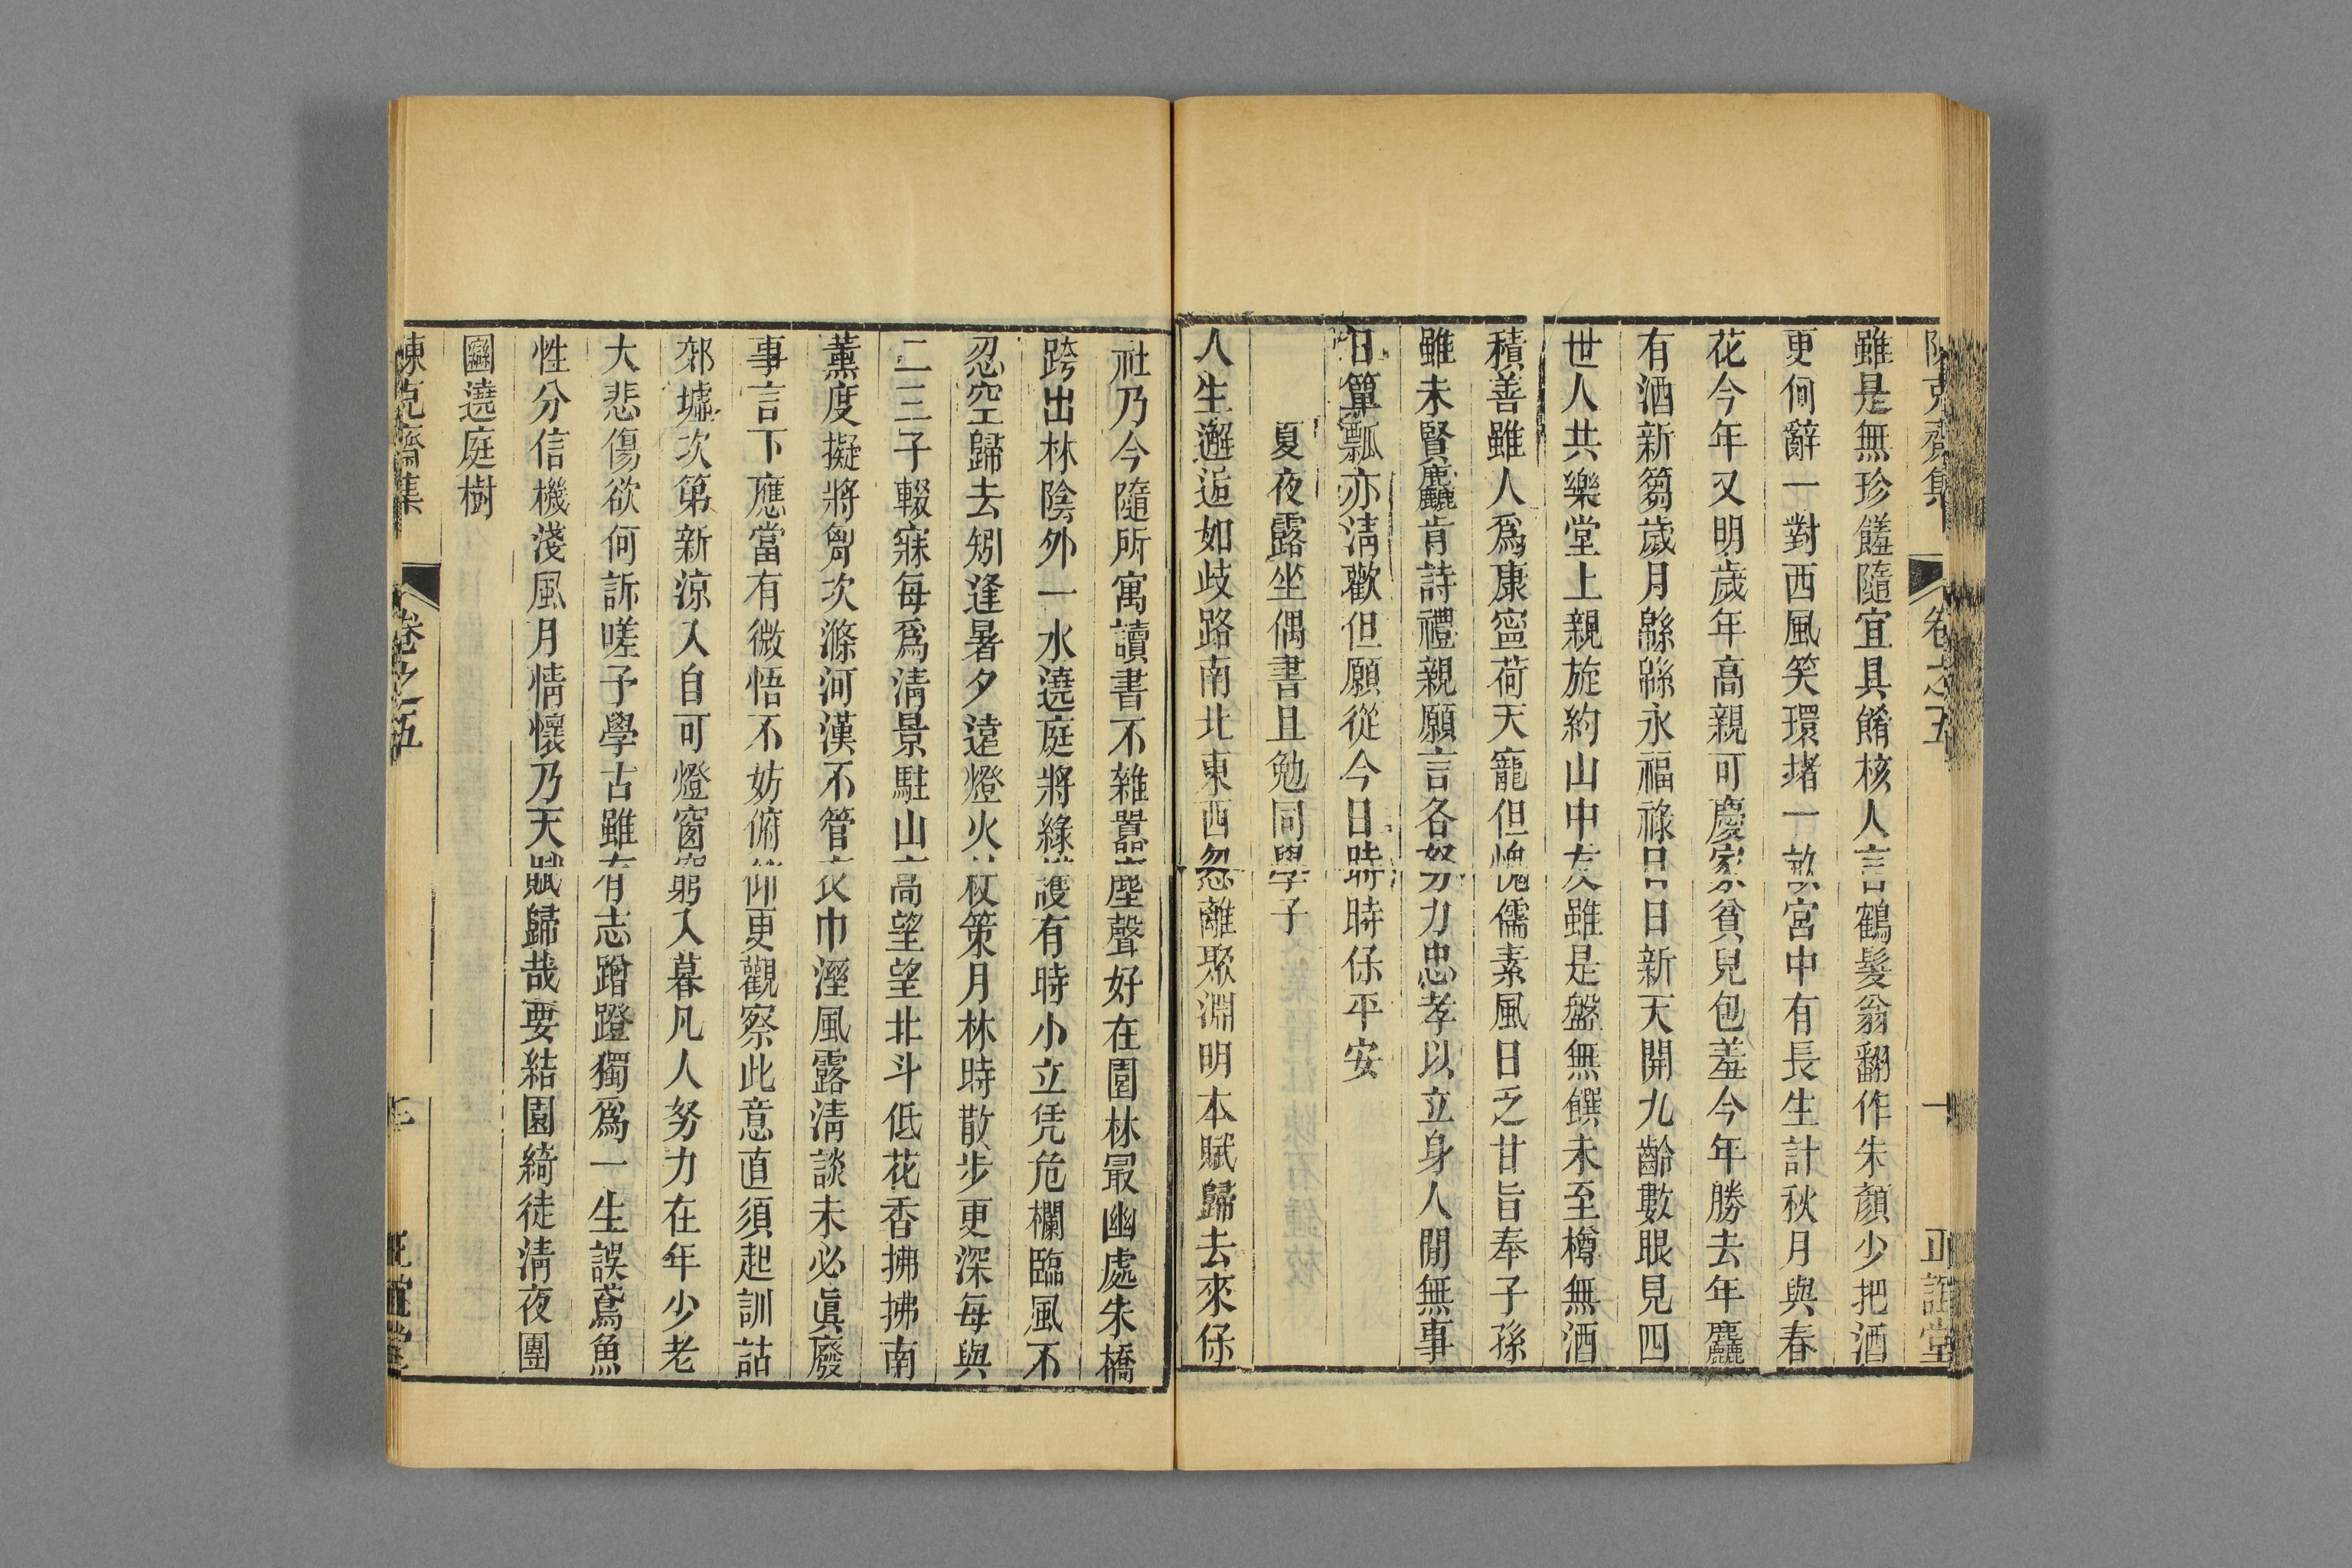 陳克齋集 卷之五 十 正誼堂
雖是無珍饈隨宜具餚核人言鶴髮翁翻作朱顏少把酒
更何辭一對西風笑環堵一畝宮中有長生計秋月與春
花今年又明歲年高親可慶家貧兒包羞今年勝去年麤
有酒新篘歲月緜緜永福祿日日新天開九齡數眼見四
世人共樂堂上親旋約山中友雖是盤無饌未至樽無酒
積善雖人爲康寧荷天寵但愧儒素風日之甘旨奉子孫
雖未賢麤肯詩禮親願言各努力忠孝以立身人閒無事
日簞瓢亦淸歡但願從今日時時保平安
夏夜露坐偶書且勉同學子
人生邂逅如歧路南北東西忽離聚淵明本賦歸去來保
社乃今隨所寓讀書不雜囂塵聲好在園林最幽處朱橋
跨出林陰外一水澆庭將綠護有時小立凭危欄臨風不
忍空歸去矧逢暑夕遠燈火杖策月林時散步更深每與
二三子輟寐每爲淸景駐山高望望北斗低花香拂拂南
薰度擬將胷次滌河漢不管衣巾溼風露淸談未必眞廢
事言下應當有微悟不妨俯仰更觀察此意直須起訓詁
郊墟次第新涼入自可燈窗窮入暮凡人努力在年少老
大悲傷欲何訴嗟予學古雖有志蹭蹬獨爲一生誤鳶魚
性分信機淺風月情懷乃天賦歸哉要結園綺徒淸夜團
圝遶庭樹
陳克齋集 卷之五 正誼堂